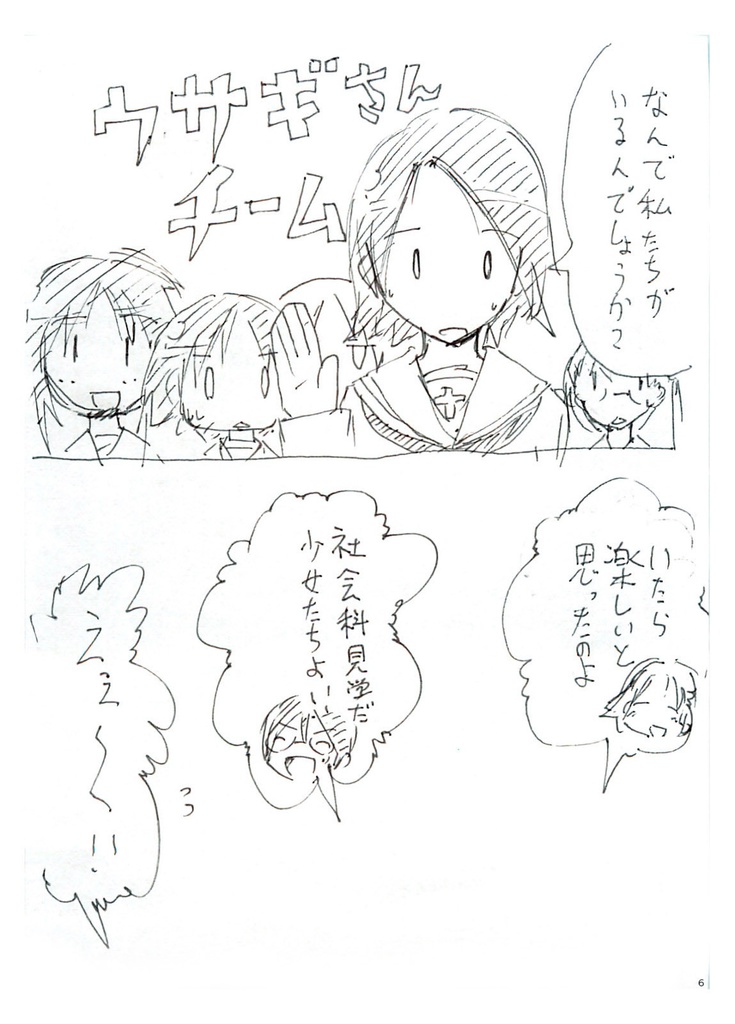 なんで私たちが
いるんでしょうか?
ウサギさん
チーム
いたら
楽しいと
思ったのよ
社会科見学だ
少女たちよい
ええ〜〜!!
っっ
6